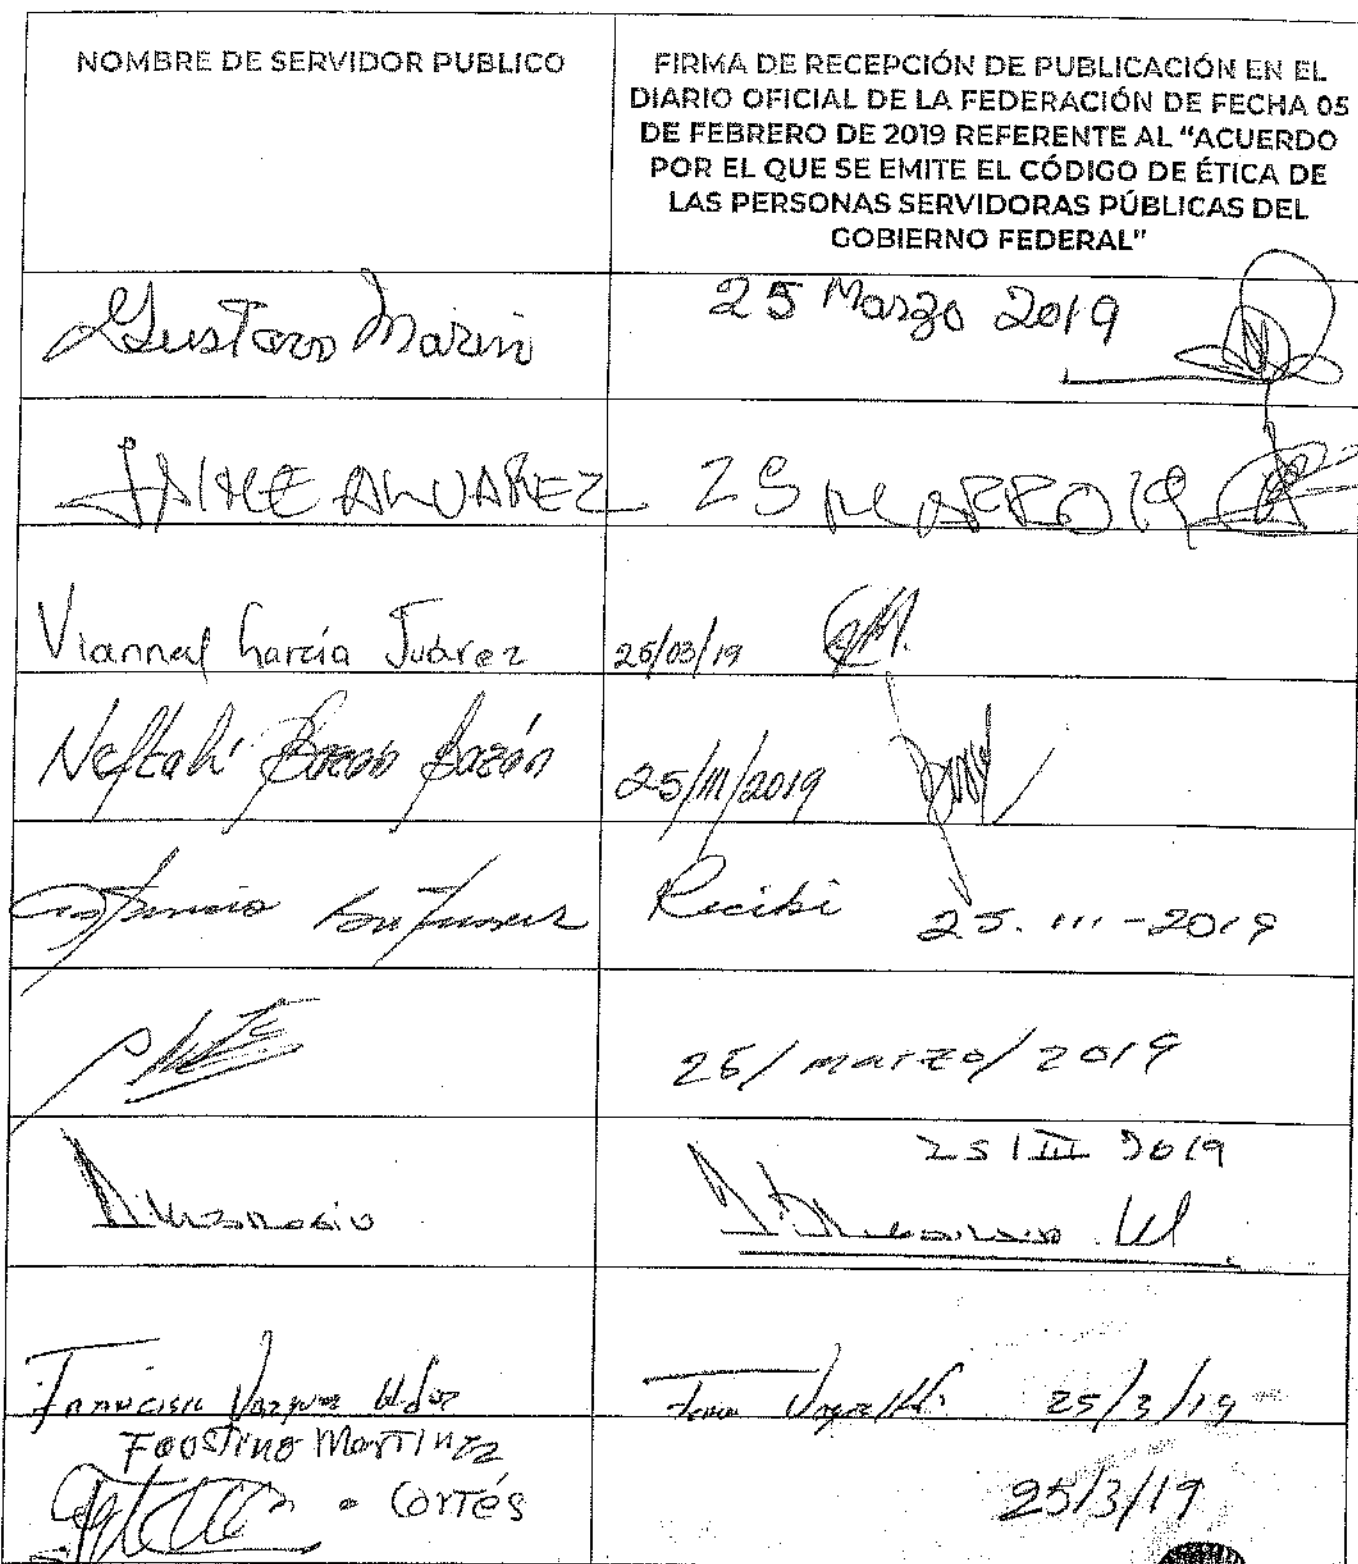 NOMBRE DE SERVIDOR PUBLICO
FIRMA DE RECEPCIÓN DE PUBLICACIÓN EN EL
DIARIO OFICIAL DE LA FEDERACIÓN DE FECHA 05
DE FEBRERO DE 2019 REFERENTE AL "ACUERDO
POR EL QUE SE EMITE EL CÓDIGO DE ÉTICA DE
LAS PERSONAS SERVIDORAS PÚBLICAS DEL
GOBIERNO FEDERAL"
Gustavo Marin
25 Marzo 2019
JAIME ALVAREZ
25 MARZO 19
Vianney García Juárez
25/03/19
Neftalí Bazán Bazán
25/III/2019
Recibi 25. III - 2019
25/marzo/2019
25 III 2019
Francisco Vazquez
25/3/19
Faustino Martinez
Cortés
25/3/19